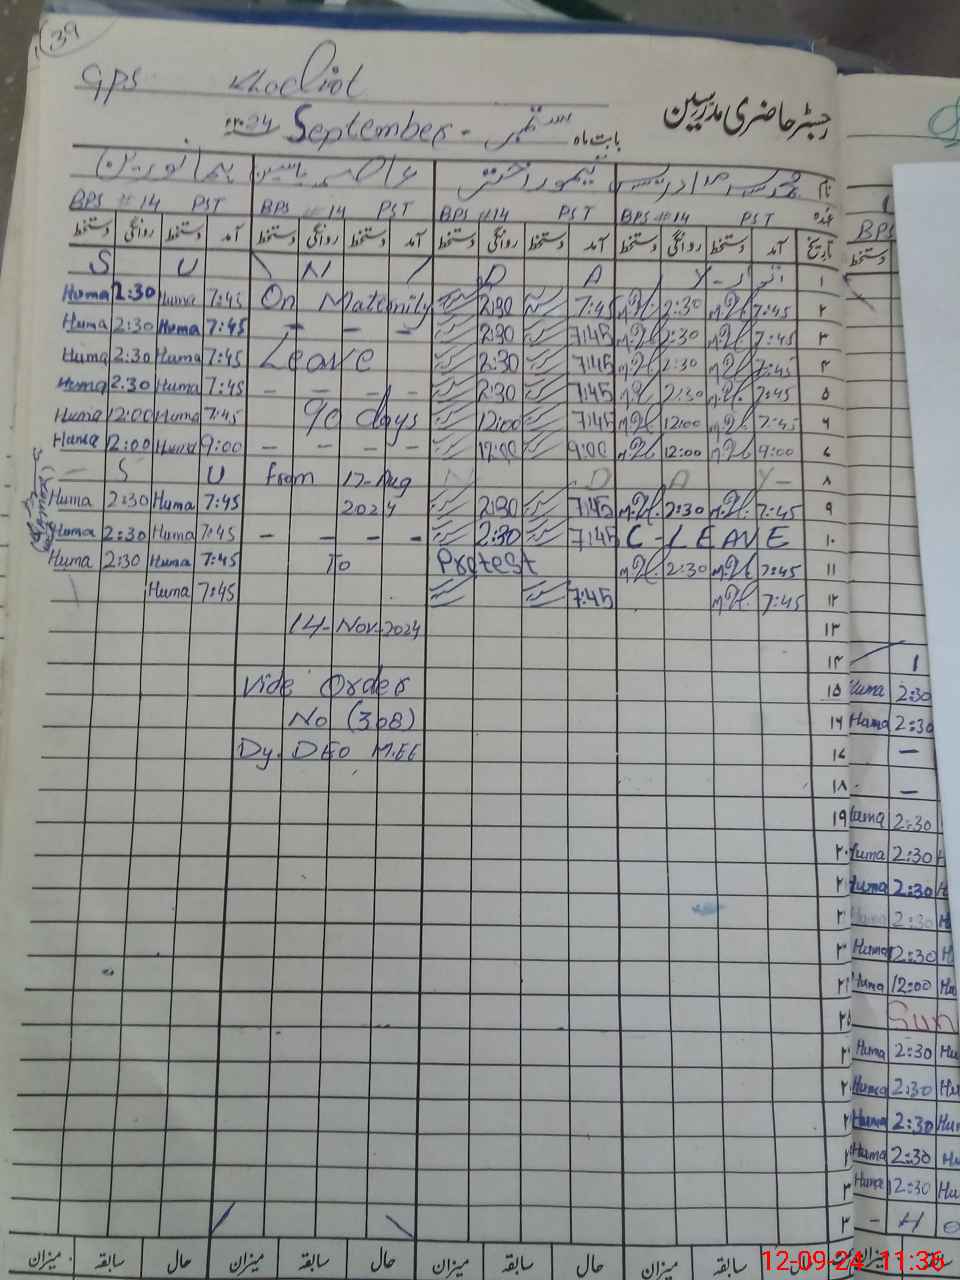 39
GPS Khodliot
رجسٹر حاضری مدرسین
بابت ماہ ستمبر - September 2024
نام محمد ادریس تیمور اختر یاسمین ہما نورین
عہدہ
BPS # 14 PST BPS # 14 PST BPS #14 PST BPS # 14 PST
تاریخ آمد دستخط روانگی دستخط آمد دستخط روانگی دستخط آمد دستخط روانگی دستخط آمد دستخط روانگی دستخط
S U N D A Y - اتوار ۱
Huma 2:30 Huma 7:45 On Maternity 2:30 7:45 2:30 7:45 ۲
Huma 2:30 Huma 7:45 - - - 2:30 7:45 2:30 7:45 ۳
Huma 2:30 Huma 7:45 Leave 2:30 7:45 2:30 7:45 ۴
Huma 2:30 Huma 7:45 - - - - 2:30 7:45 2:30 7:45 ۵
Huma 12:00 Huma 7:45 90 days 12:00 7:45 12:00 7:45 ۶
Huma 2:00 Huma 9:00 - - - - 12:00 9:00 12:00 9:00
S U from 17-Aug N D A Y - ۸
Huma 2:30 Huma 7:45 2024 2:30 7:45 2:30 7:45 ۹
Huma 2:30 Huma 7:45 - - - - 2:30 7:45 C-LEAVE ۱۰
Huma 2:30 Huma 7:45 To Protest 2:30 7:45 ۱۱
Huma 7:45 7:45 7:45 ۱۲
14-Nov-2024 ۱۳
Vide Order ۱۵
No (308)
Dy. DEO M.EE
۱۸
۱۹
میزان سابقہ حال میزان سابقہ حال میزان سابقہ حال میزان سابقہ حال
BPS
دستخط
Huma 2:30
Huma 2:30
-
-
Huma 2:30
Huma 2:30
Huma 2:30
Huma 2:30
Huma 2:30
Huma 12:00
Sun
Huma 2:30 Hu
Huma 2:30 Hu
Huma 2:30 Hu
Huma 2:30 Hu
Huma 2:30 Hu
- H O
میزان سابقہ
12-09-24 11:36